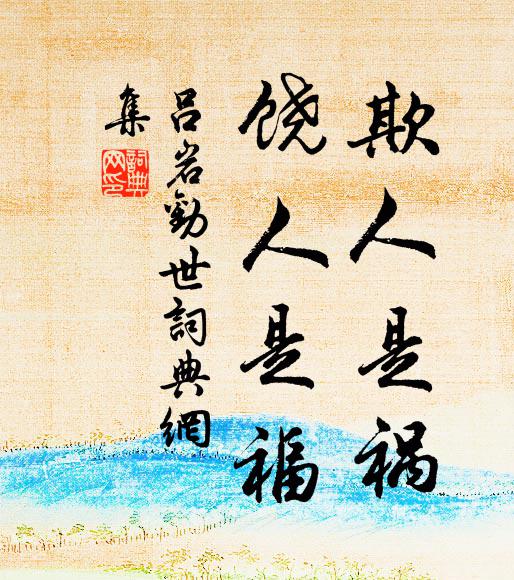 欺人是祸
饶人是福
吕岩勸世詞典網
集
詞典
网印